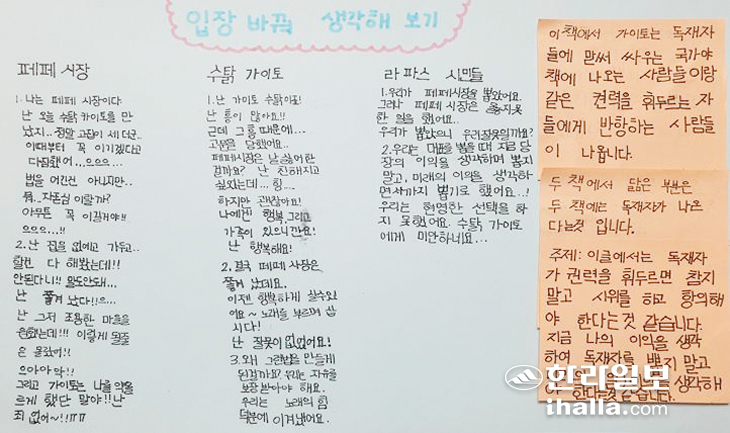 입장 바꿔 생각해 보기
페페 시장
1. 나는 페페 시장이다.
난 오늘 수탉 가이토를 만
났지.. 정말 고집이 세더군..
이때부터 꼭 이기겠다고
다짐했어...으으으...
법을 어긴건 아니지만..
뭐.. 자존심 이랄까?
아무튼 꼭 이길거야!!
으으으...!!
2. 난 집을 없애고 가두고..
할껀 다 해봤는데!!
안된다니!! 말도안돼...
난 쫓겨 났다!!으...
난 그저 조용한 마을을
원했는데!!! 이렇게 될줄
은 몰랐어!!
으아아악!!
그리고 가이토는 나를 약을
르게 했단 말야!! 난
죄 없어~!!ㅠㅠ
수탉 가이토
1. 난 가이토 수탉이죠!
난 흥이 많아요!!
근데 그흥 때문에...
고문을 당했어요..
페페시장은 날 싫어한
걸까요? 난 친해지고
싶었는데... 힝...
하지만 괜찮아요!
나에겐 행복, 그리고
가족이 있으니깐요!
난 행복해요!
2. 결국 페페 시장은
쫓겨 났데요.
이젠 행복하게 살수있
어요~ 노래를 부르며 삽
시다!
난 잘못이 없었어요!
3. 왜 그런법을 만들게
된걸까요? 우리는 자유를
보장 받아야 해요.
우리는 노래의 힘
덕분에 이겨냈어요.
라 파스 시민들
1. 우리가 페페시장을 뽑았어요.
그러나 페페 시장은 옳지못
한 일을 했어요..
우리가 뽑았으니 우리잘못일까요?
2. 우리는 대표를 뽑을 때 지금 당
장의 이익을 생각하며 뽑지
말고, 미래의 이익을 생각하
면서까지 뽑기로 했어요..!
우리는 현명한 선택을 하
지 못했어요. 수탉 가이토
에게 미안하네요...
이 책에서 가이토는 독재자
들에 맞써 싸우는 국가야
책에 나오는 사람들이랑
같은 권력을 휘두르는 자
들에게 반항하는 사람들
이 나옵니다.
두 책에서 닮은 부분은
두 책에는 독재자가 나온
다는것 입니다.
주제: 이글에서는 독재자
가 권력을 휘두르면 참지
말고 시위를 하고 항의해
야 한다는것 같습니다.
지금 나의 이익을 생각
하여 독재자를 뽑지 말고
생각해
야 한다는것 같습니다.
한라일보
ihalla.com